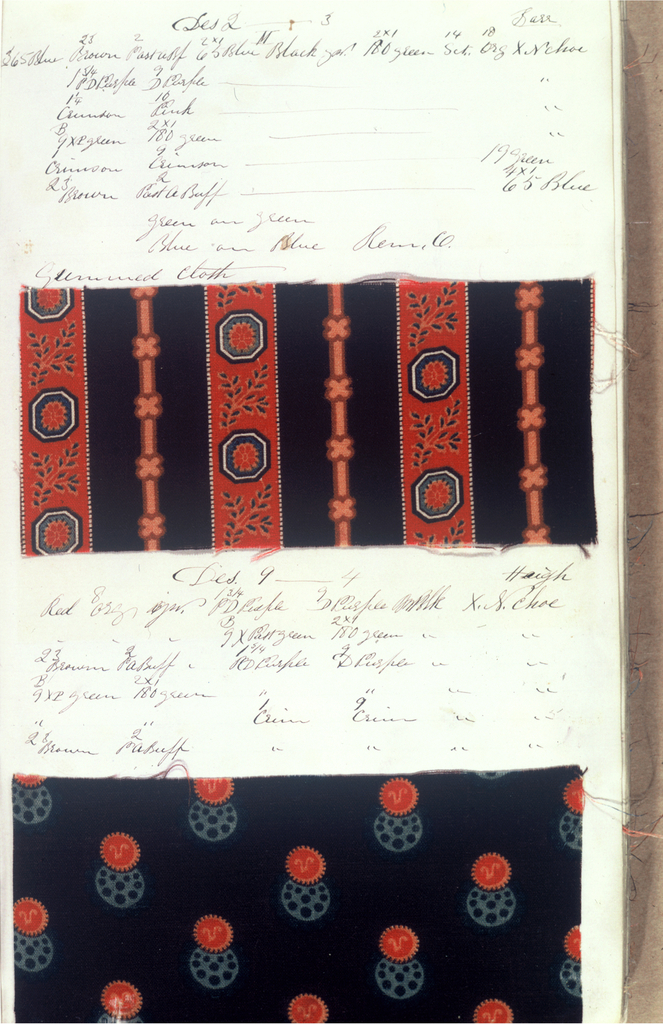 Des 2 — 3
23 2 2x1 M 2x1 14 18
365 Blue Brown Past a Bf 65 Blue Black 180 green Org X N Choc
1 3/4 9
PD Purple D Purple — "
14 10
Crimson Pink — "
B 2x1
9 x P green 180 green — "
9
Crimson Crimson — 19 green
23 2 4x1
Brown Past a Buff — 65 Blue
green on green
Blue on Blue
Gummed Cloth
Des. 9 — 4 Haigh
8 1 3/4 9
Red Org PD Purple D Purple X. N. Choc
B 2x1
9 x Past green 180 green " " "
23 2 1 3/4 9
Brown Pa Buff " PD Purple D Purple " "
B 2x1
9 x P green 180 green " " " "
9
" " Crim Crim " "
23 2
Brown Pa Buff " " " "